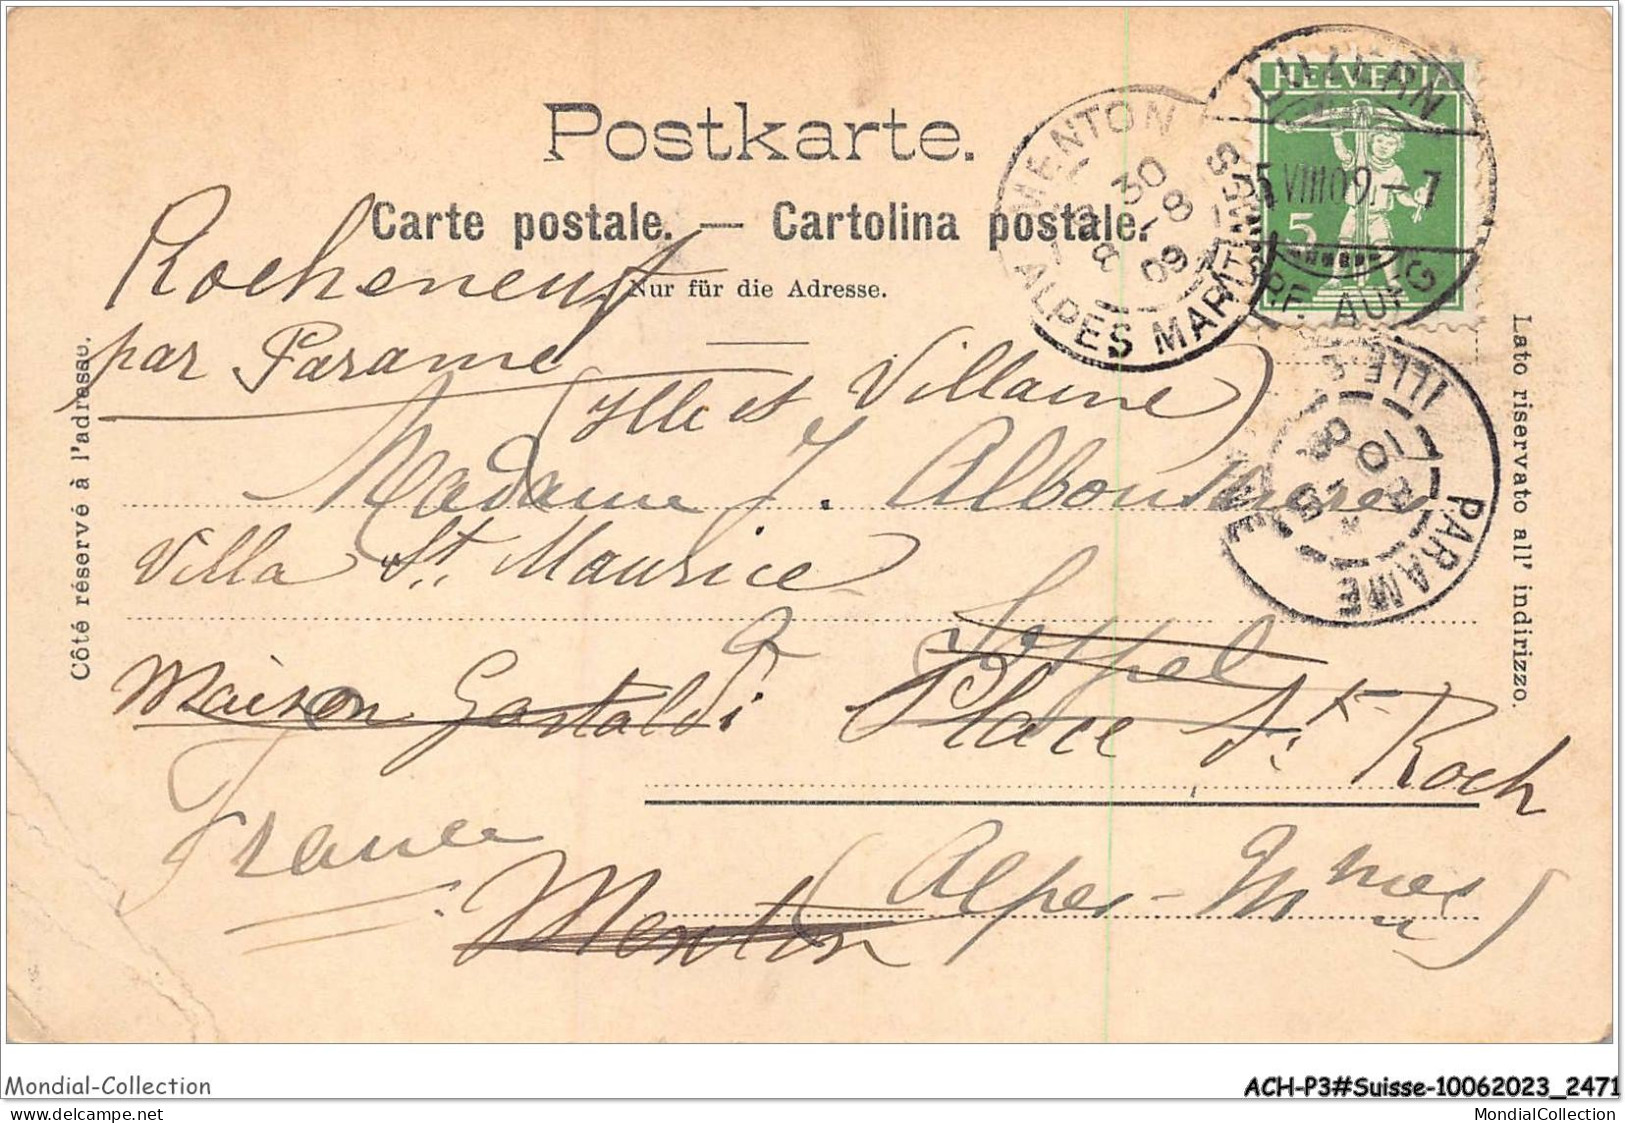 Postkarte.
Carte postale. — Cartolina postale.
Nur für die Adresse.
Côté réservé à l'adresse.
Lato riservato all' indirizzo.
HELVETIA
5
MENTON
30 - 8
09
ALPES MARITIMES
VIII 09 - 7
PARAME
ILLE
Rocheneuf
par Parame
(Ylle et Villaine)
Madame J.
Villa St. Maurice
Maison Gastaldi
Place St. Roch
France
Menton (Alpes-Mmes)
Mondial-Collection
ACH-P3#Suisse-10062023_2471
MondialCollection